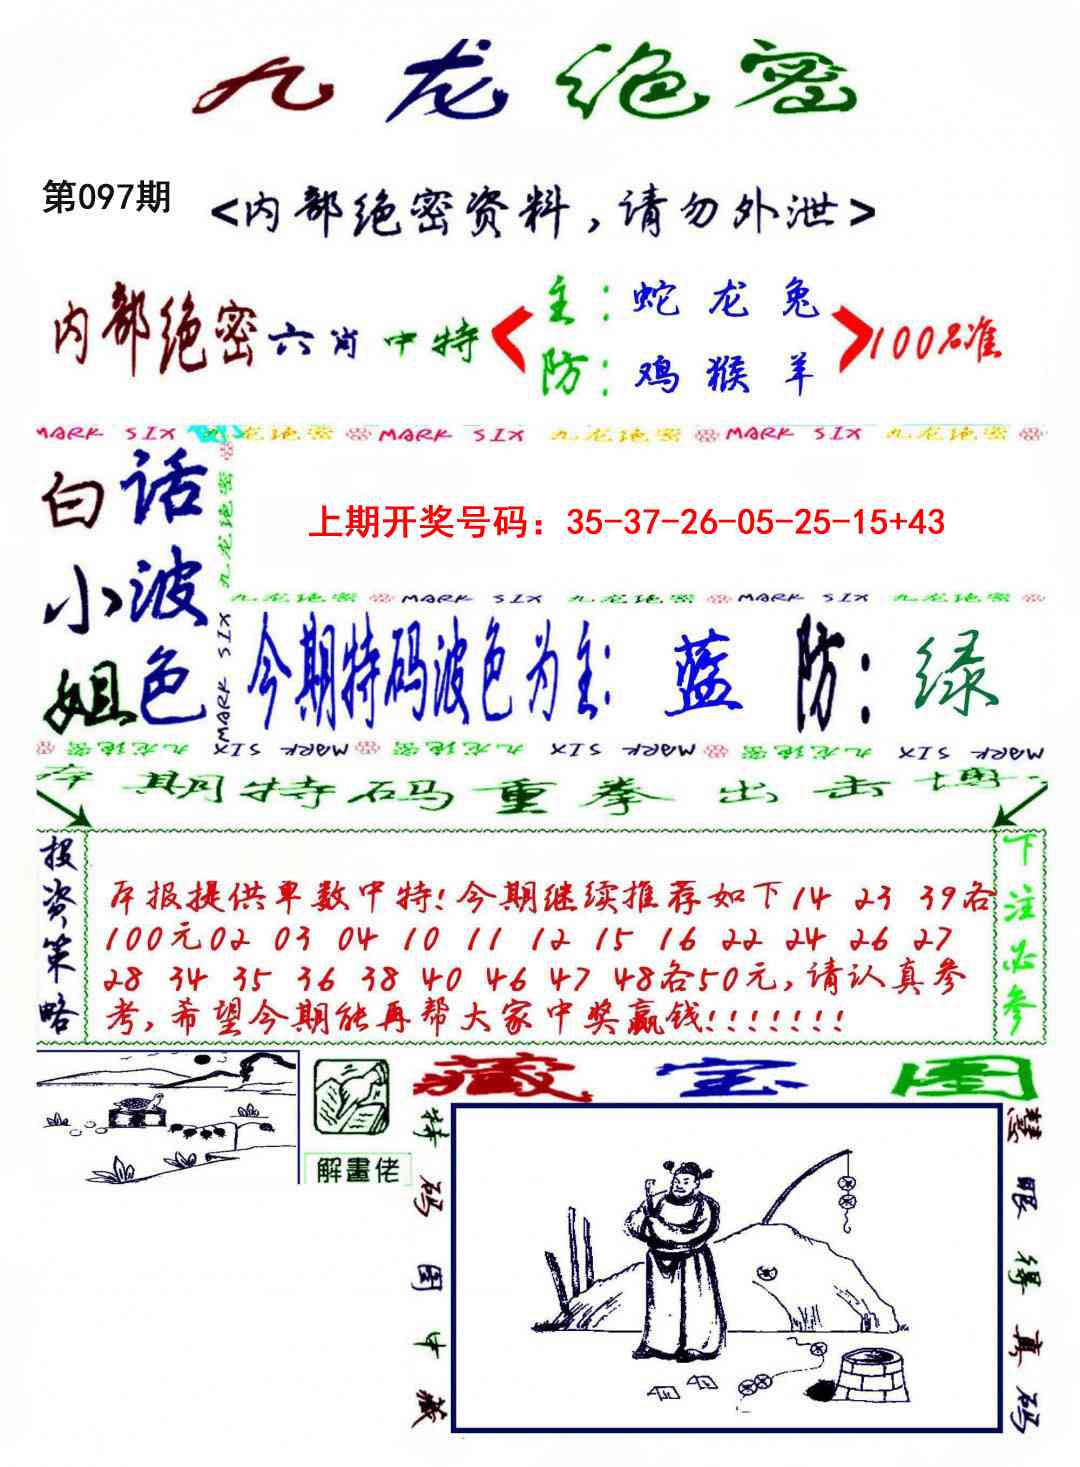 九龙绝密
第097期
<内部绝密资料,请勿外泄>
内部绝密六肖中特
主:蛇 龙 兔
防:鸡 猴 羊
100%准
MARK SIX 九龙绝密 MARK SIX 九龙绝密 MARK SIX 九龙绝密
白小姐
话波色
九龙绝密 MARK SIX
上期开奖号码：35-37-26-05-25-15+43
九龙绝密 MARK SIX 九龙绝密 MARK SIX 九龙绝密
今期特码波色为主:蓝 防:绿
九龙绝密 MARK SIX 九龙绝密 MARK SIX 九龙绝密 MARK SIX
本期特码重拳出击博
投资策略
本报提供单数中特!今期继续推荐如下14 23 39各
100元02 03 04 10 11 12 15 16 22 24 26 27
28 34 35 36 38 40 46 47 48各50元,请认真参
考,希望今期能再帮大家中奖赢钱!!!!!!!
下注必参
解畫佬
藏宝图
特码图中藏
慧眼得真码